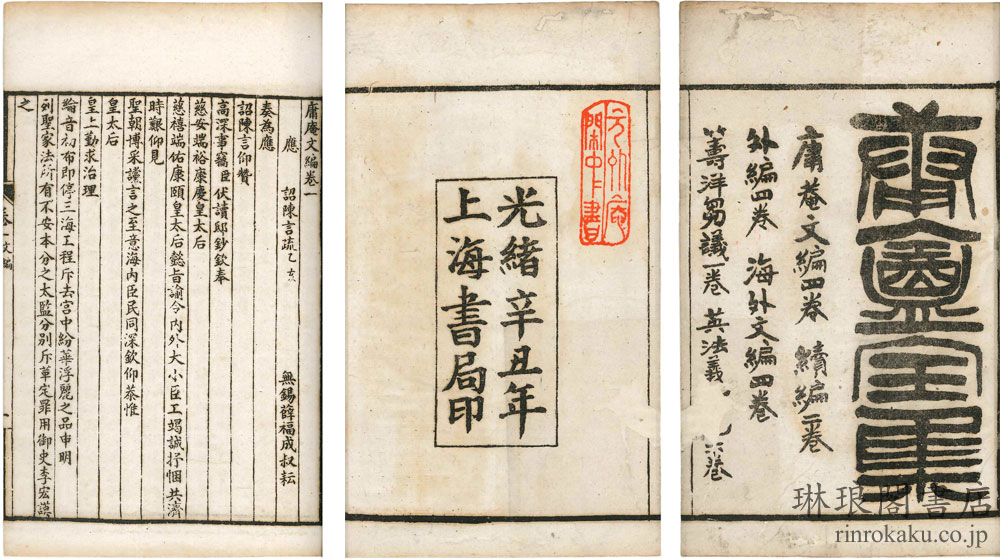 庸盦全集
庸菴文編四卷 續編二卷
外編四卷 海外文編四卷
籌洋芻議一卷 英法義 卷
光緒辛丑年
上海書局印
庸庵文編卷一
無錫薛福成叔耘
應 詔陳言疏乙亥
奏為應
詔陳言仰贊
高深事竊臣伏讀邸鈔欽奉
慈安端裕康慶皇太后
慈禧端佑康頤皇太后懿旨諭令內外大小臣工竭誠抒悃共濟
時艱仰見
聖朝博采讜言之至意海內臣民同深欽仰恭惟
皇太后
皇上勤求治理
綸音初布即停三海工程斥去宮中紛華浮麗之品申明
列聖家法所有不安本分之太監分別斥革定罪用御史李宏謨
之
卷一文編
一
琳琅閣書店
rinrokaku.co.jp